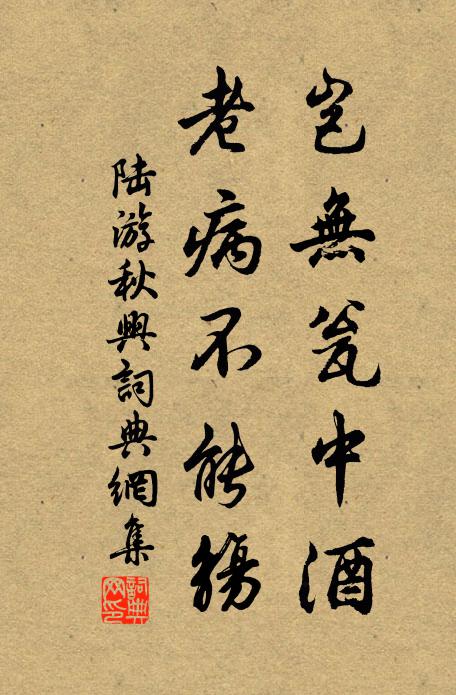 岂無瓮中酒
老病不能觞
陆游秋興詞典網集
詞典网印